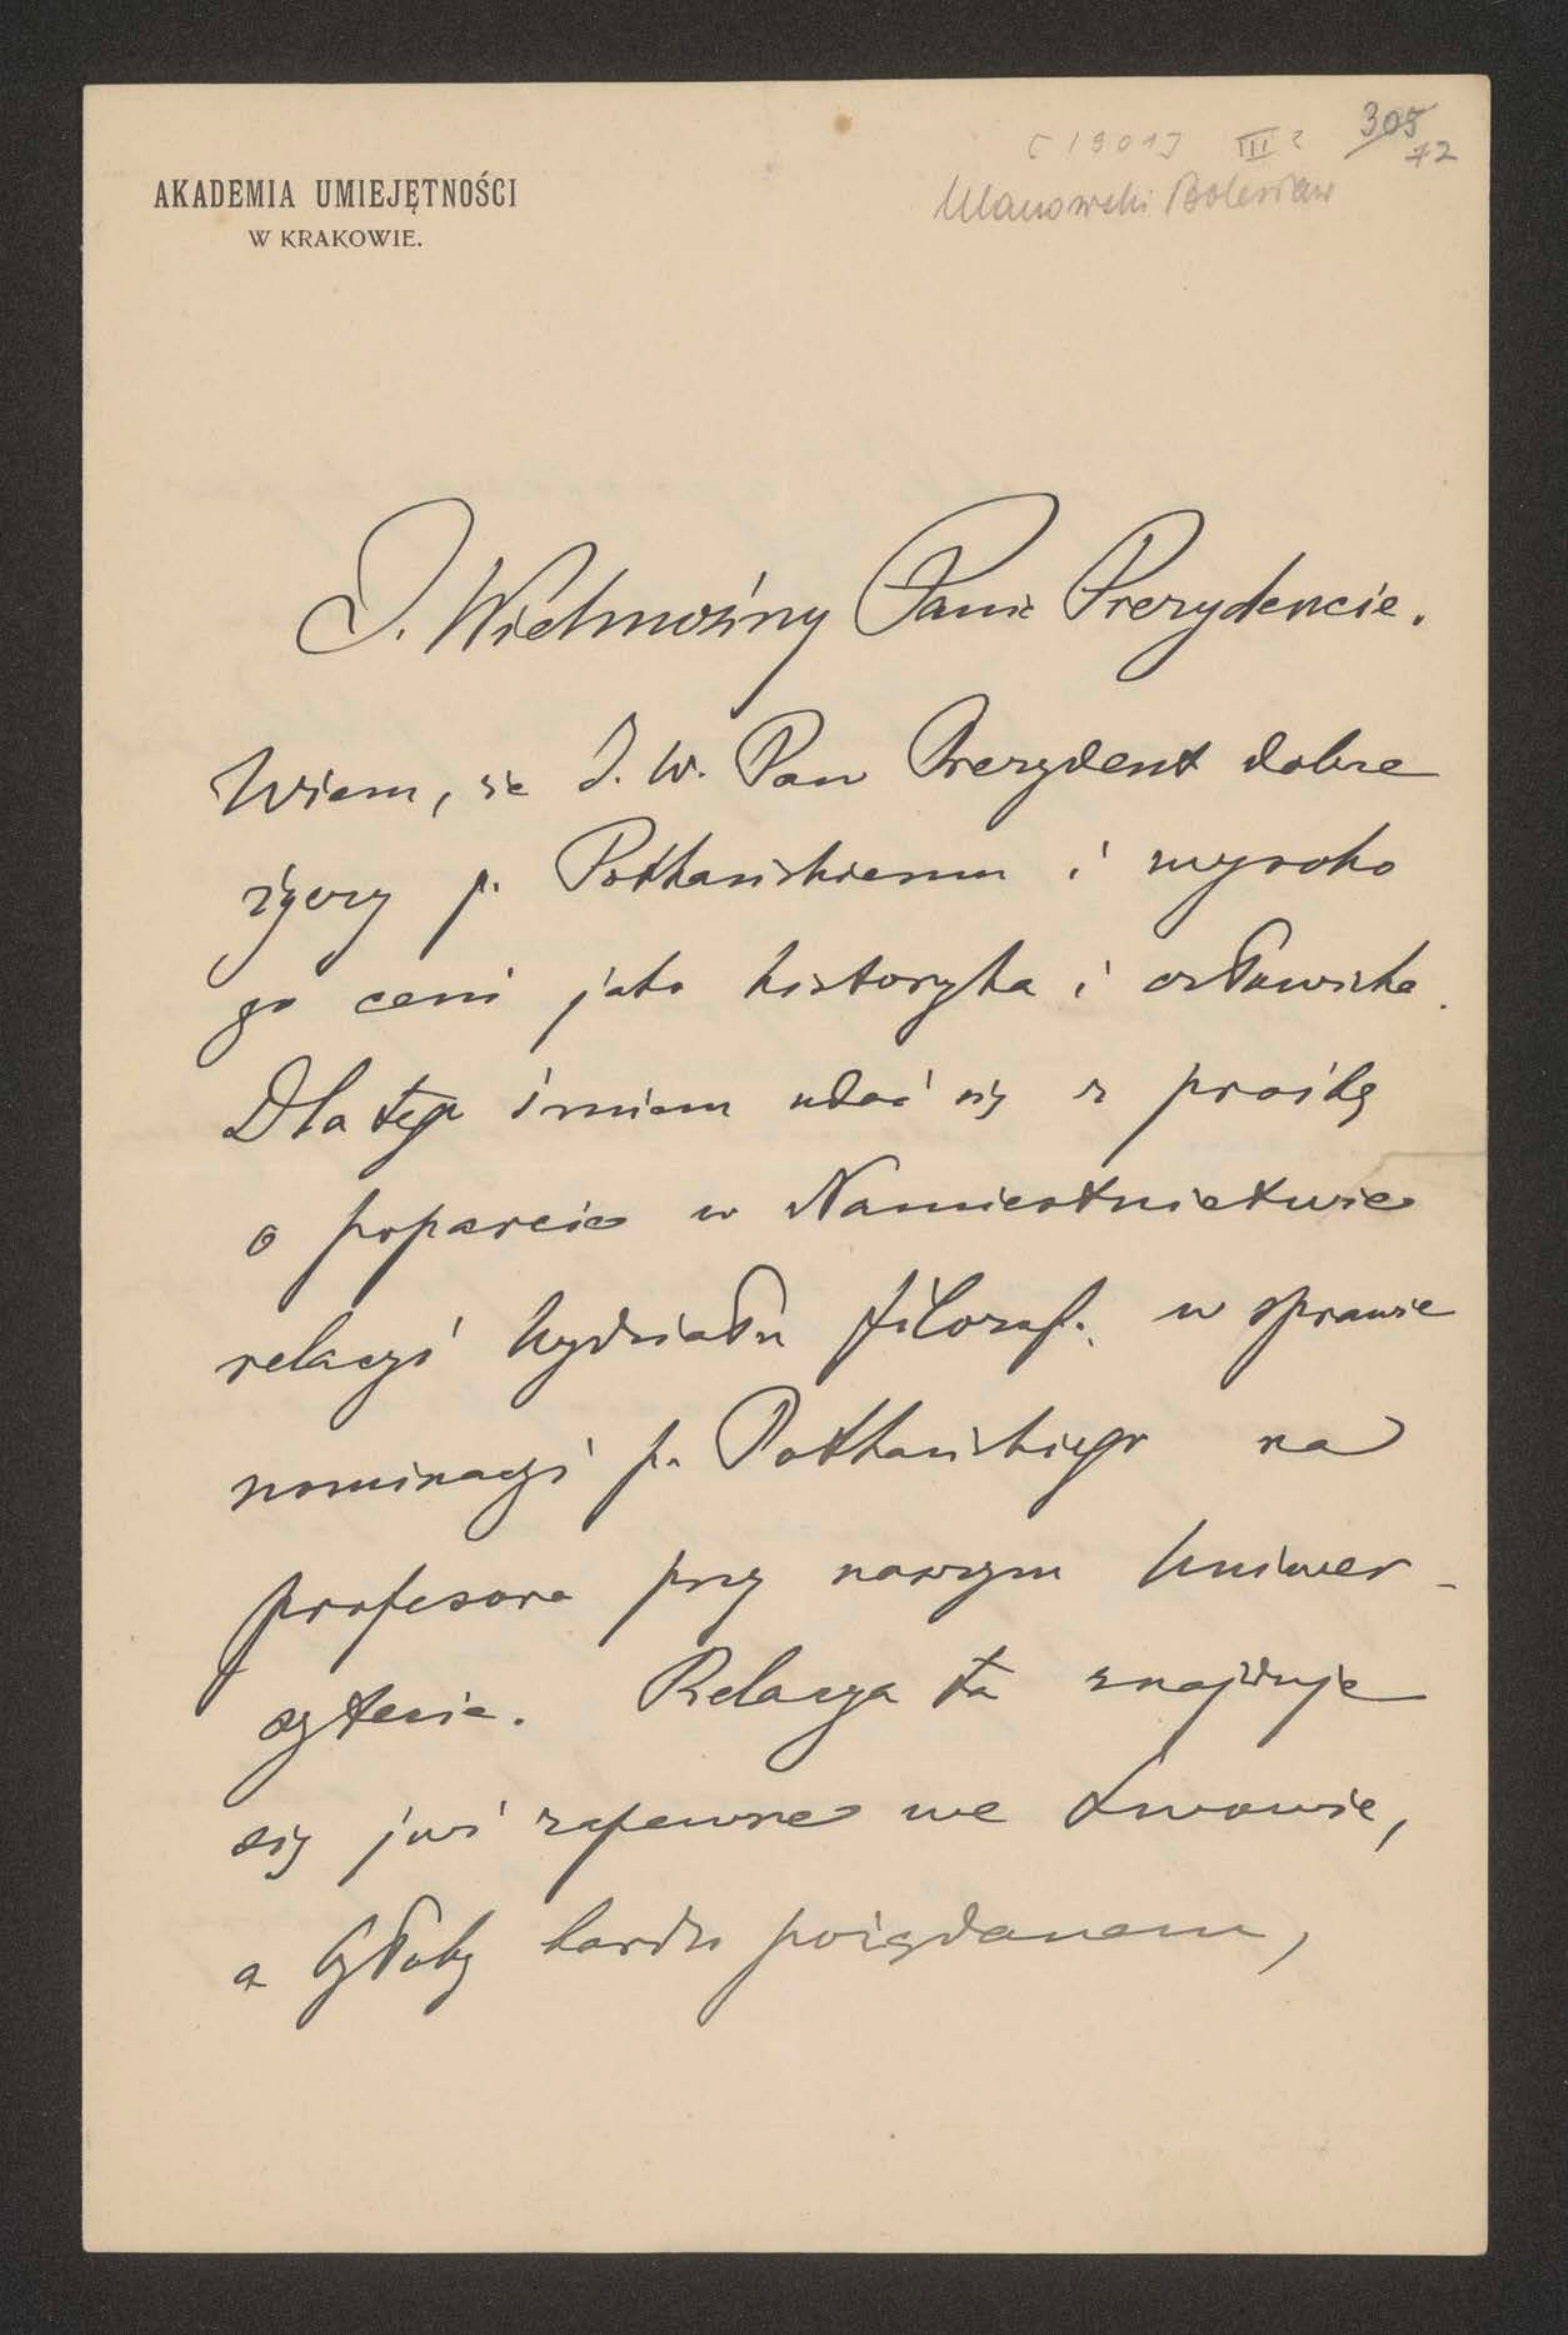 [1901] III ? 305
72
AKADEMIA UMIEJĘTNOŚCI
W KRAKOWIE.
Ulanowski Bolesław
J. Wielmożny Panie Prezydencie.
Wiem, że J. W. Pan Prezydent dobrze
życzy p. Potkańskiemu i wysoko
go ceni jako historyka i człowieka.
Dla tego śmiem udać się z prośbą
o poparcie w Namiestnictwie
relacyi Wydziału filozof. w sprawie
nominacyi p. Potkańskiego na
profesora przy naszym Uniwer-
sytecie. Relacya ta znajduje
się już zapewne we Lwowie,
a byłoby bardzo pożądanem,